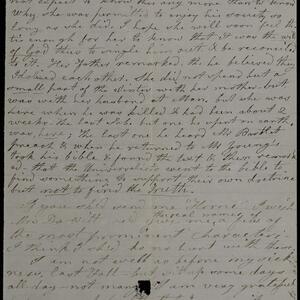 not expect to know this any more than to know
Why she was permitted to enjoy his society so
long as she did. I hope she will soon feel
it enough for her to know, that it was the will
of God thus to single him out & be reconciled
to it. Her Father remarked, that he believed they
Idolized each other. She did not spend but a
small part of the Winter with her mother, but
was with her husband at but she was
here when he was killed & had been about 2
weeks. the last Sab. but one he spent on earth
was here; the last one he heard Mr Bartlet
preach & when he returned to Mr Young's
took his bible & found the text & then remark
ed, that the Universalists went to the bible to
find something to support their own doctrine
but not to find the truth.
If you should send me "Home" I wish
Mr DeWitt would give me the
real names of
the most prominent characters,
I think I shed no no with them.
I am not as well as before my sick
ness, last Fall - but sit up some days
all day - not many. I am very gratified